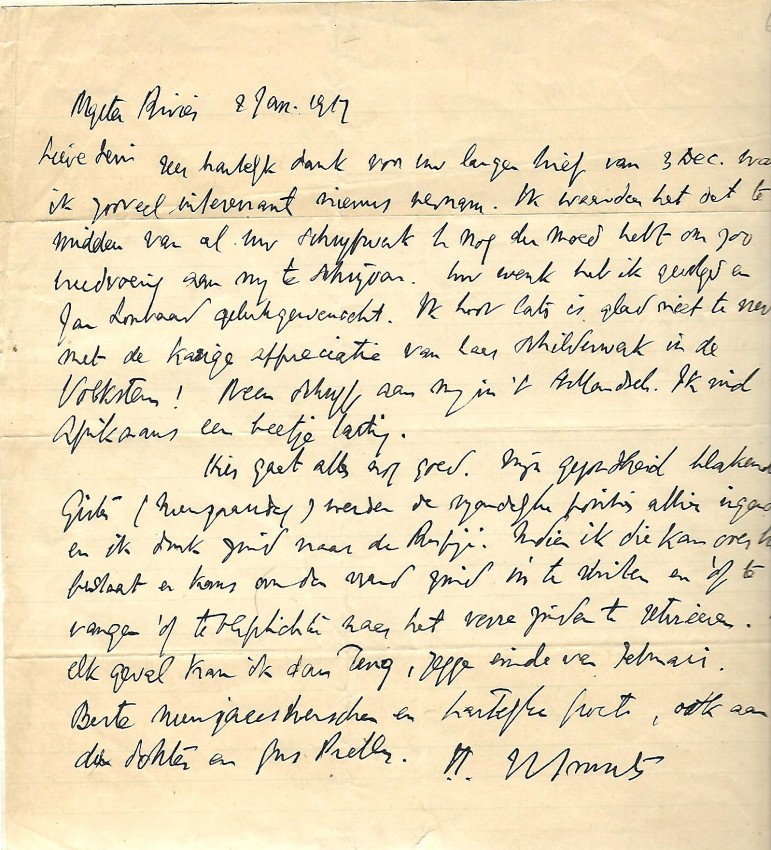 Mgeta Rivier 2 Jan. 1917
Lieve zeer hartelijk dank voor uw langen brief van 3 Dec. wa
ik zooveel interessant nieuws vernam. Ik waardeer het dat te
midden van al uw schryfwerk U nog den moed hebt om zoo
aan my te schryven. Uw wenk heb ik gevolgd en
Jan gelukgewenscht. Ik hoor Cato is glad niet te
met de karige appreciatie van haar schilderwerk in de
Volkstem! Neen schryf aan my in 't Hollandsch. Ik vind
Afrikaans een beetje lastig.
Hier gaat alles nog goed. Mijn gezondheid blakend
Gister (Nieuwjaarsdag) werden de vyandelyke posities alhier
en ik druk zuid naar de Rufiji. Indien ik die kan over
bestaat er kans om den vyand zuid in te sluiten en óf te
vangen óf te verplichten naar het verre zuiden te retireeren.
elk geval kan ik dan terug, zegge einde van Februari.
Beste nieuwjaarswenschen en hartelyke groete, ook aan
den dokter en Gus Preller. JC Smuts